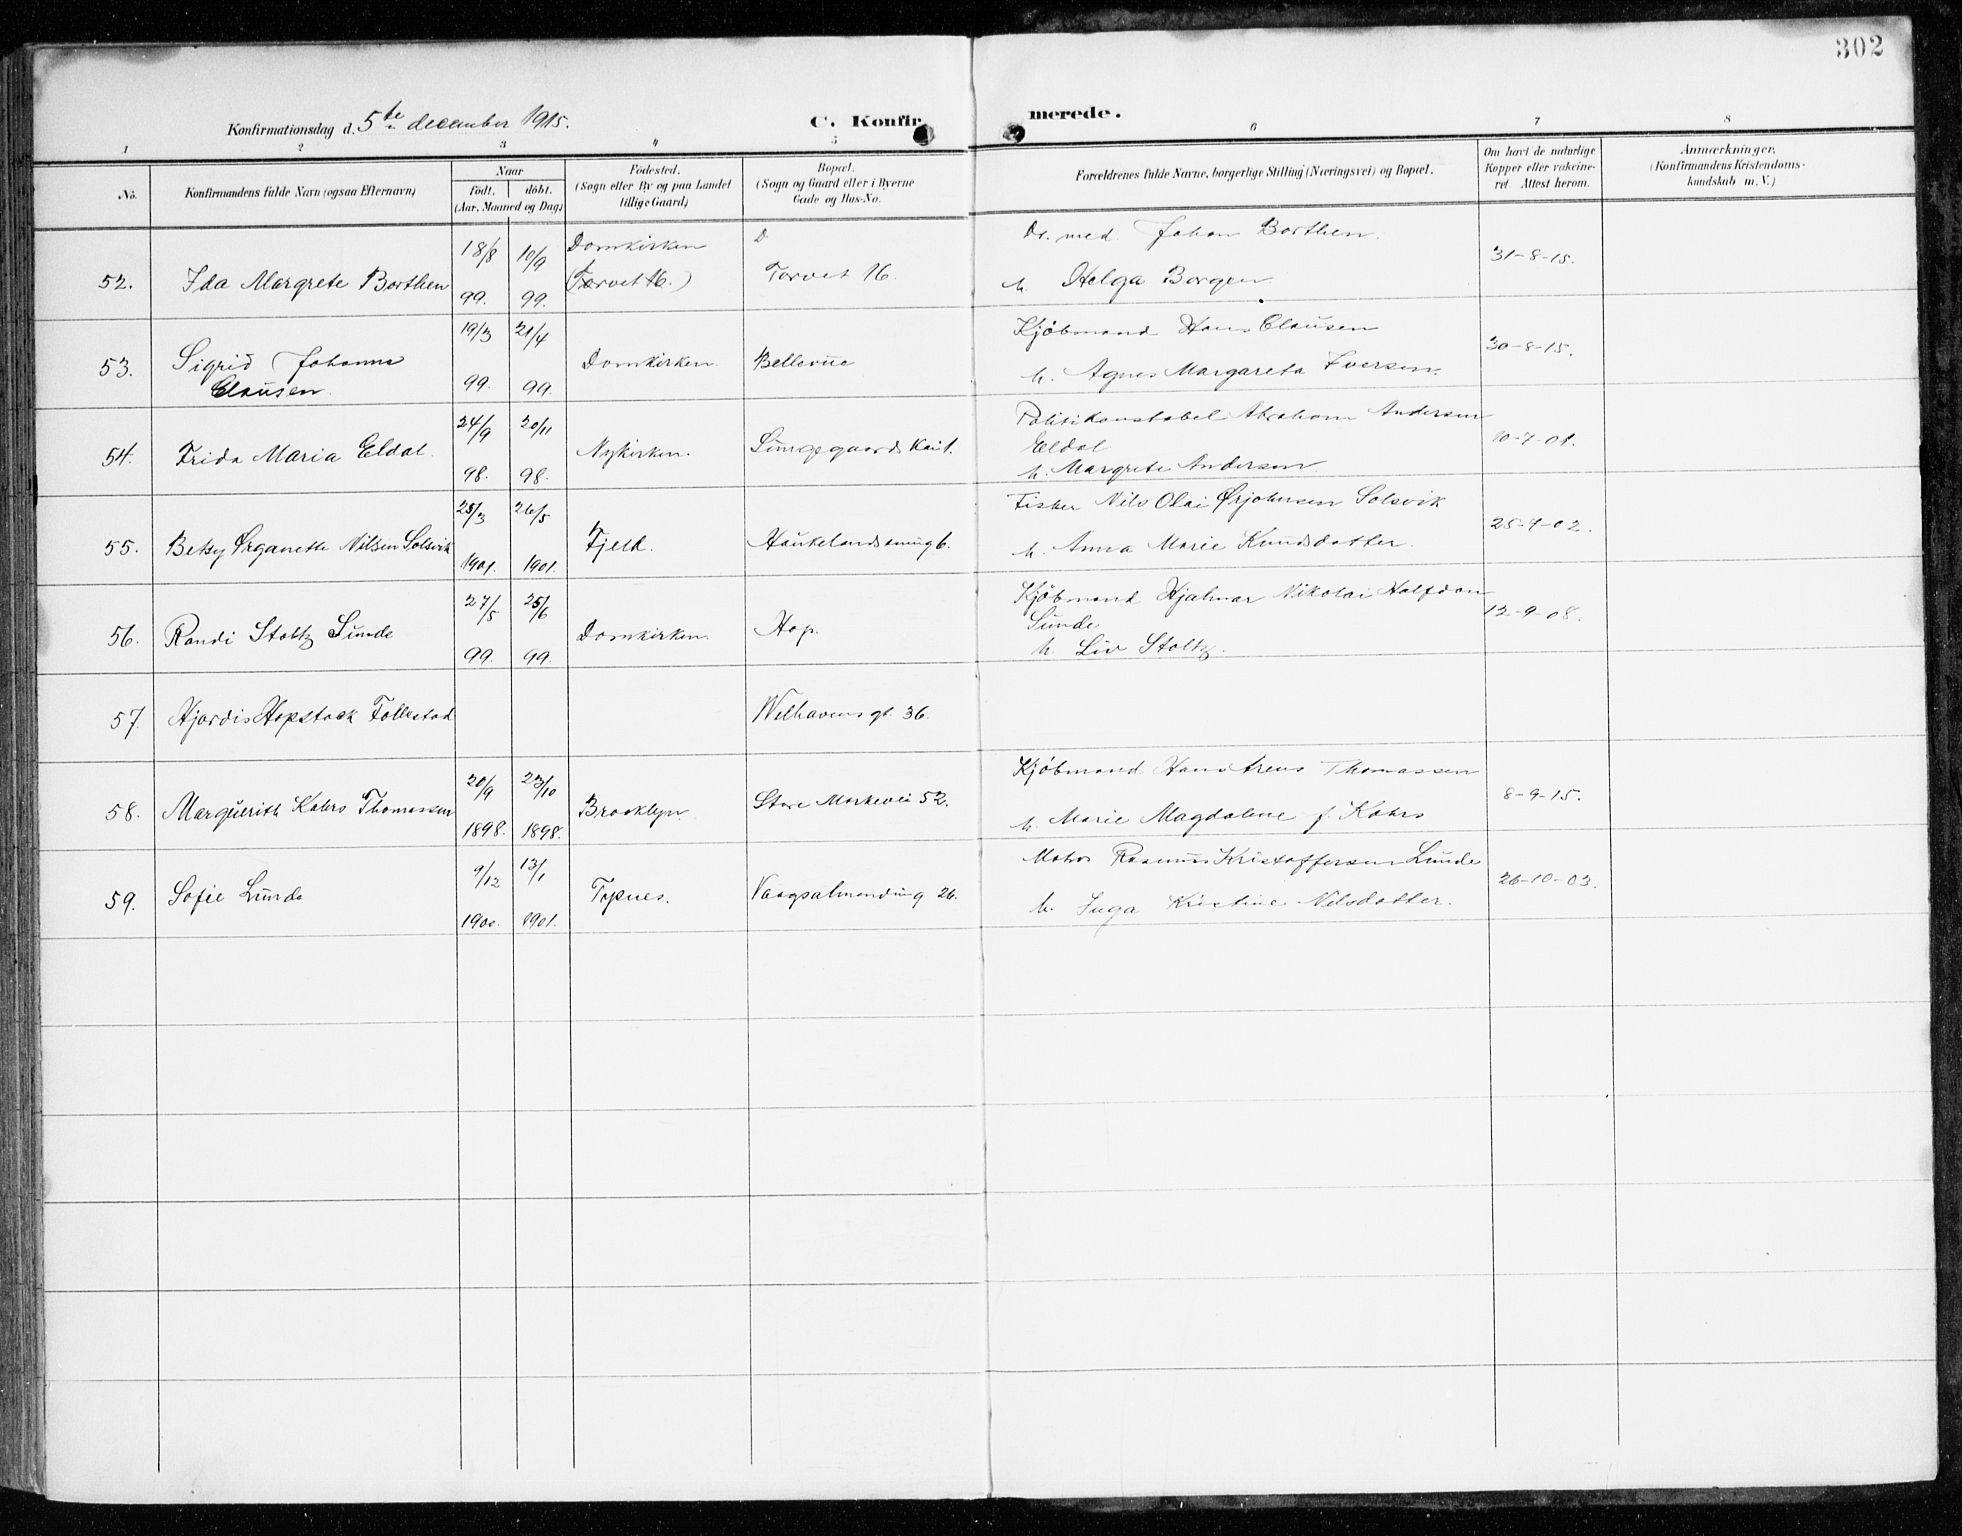 302
Konfirmationsdag d. 5te december 1915.
C. Konfirmerede.
1 2 3 4 5 6 7 8
No.
Konfirmandens fulde Navn (ogsaa Efternavn)
Naar
födt. döbt.
(Aar, Maaned og Dag)
Födested.
(Sogn eller By og paa Landet
tillige Gaard)
Bopæl.
(Sogn og Gaard eller i Byerne
Gade og Hus-No.
Forældrenes fulde Navne, borgerlige Stilling (Næringsvei) og Bopæl.
Om havt de naturlige
Kopper eller vakcine-
ret. Attest herom.
Anmærkninger.
(Konfirmandens Kristendoms-
kundskab m. V.)
52. Ida Margrete Borthen 18/8 99. 10/9 99. Domkirken (Torvet 16.) D Torvet 16.
Dr. med. Johan Borthen.
h. Helga Borgen
31-8-15.
53. Sigrid Johanna
Clausen. 19/3 99. 21/4 99. Domkirken. Bellevue
Kjöbmand Hans Clausen
h. Agnes Margareta Iversen.
30-8-15.
54. Frida Maria Eldal. 24/9 98. 20/11 98. Nykirken. Lungegaardskai 1.
Politikonstabel Abraham Andersen
Eldal
h. Margrete Andersen.
10-7-01.
55. Betsy Ørganette Nilsen Solsvik 25/3 1901. 26/5 1901. Fjeld. Haukelandsvening 6.
Fisker Nils Olai Ørjohnsen Solsvik
h. Anna Marie Knudsdatter.
25-7-02.
56. Randi Stoltz Sunde 27/5 99. 25/6 99. Domkirken. Hop.
Kjöbmand Hjalmar Nikolai Halfdan
Sunde
h. Liv Stoltz.
12-9-08.
57. Hjordis Hopstock Follestad Welhavens gt. 36.
58. Marguerith Kahrs Thomassen 20/9 1898. 23/10 1898. Brooklyn. Store Markevei 52.
Kjöbmand Hans Arens Thomassen
h. Marie Magdalene f. Kahrs
8-9-15.
59. Sofie Lunde 9/12 1900. 13/1 1901. Topnes. Vaagsalmending 26.
Matros Rasmus Kristoffersen Lunde
h. Inga Kristine Nilsdatter.
26-10-03.